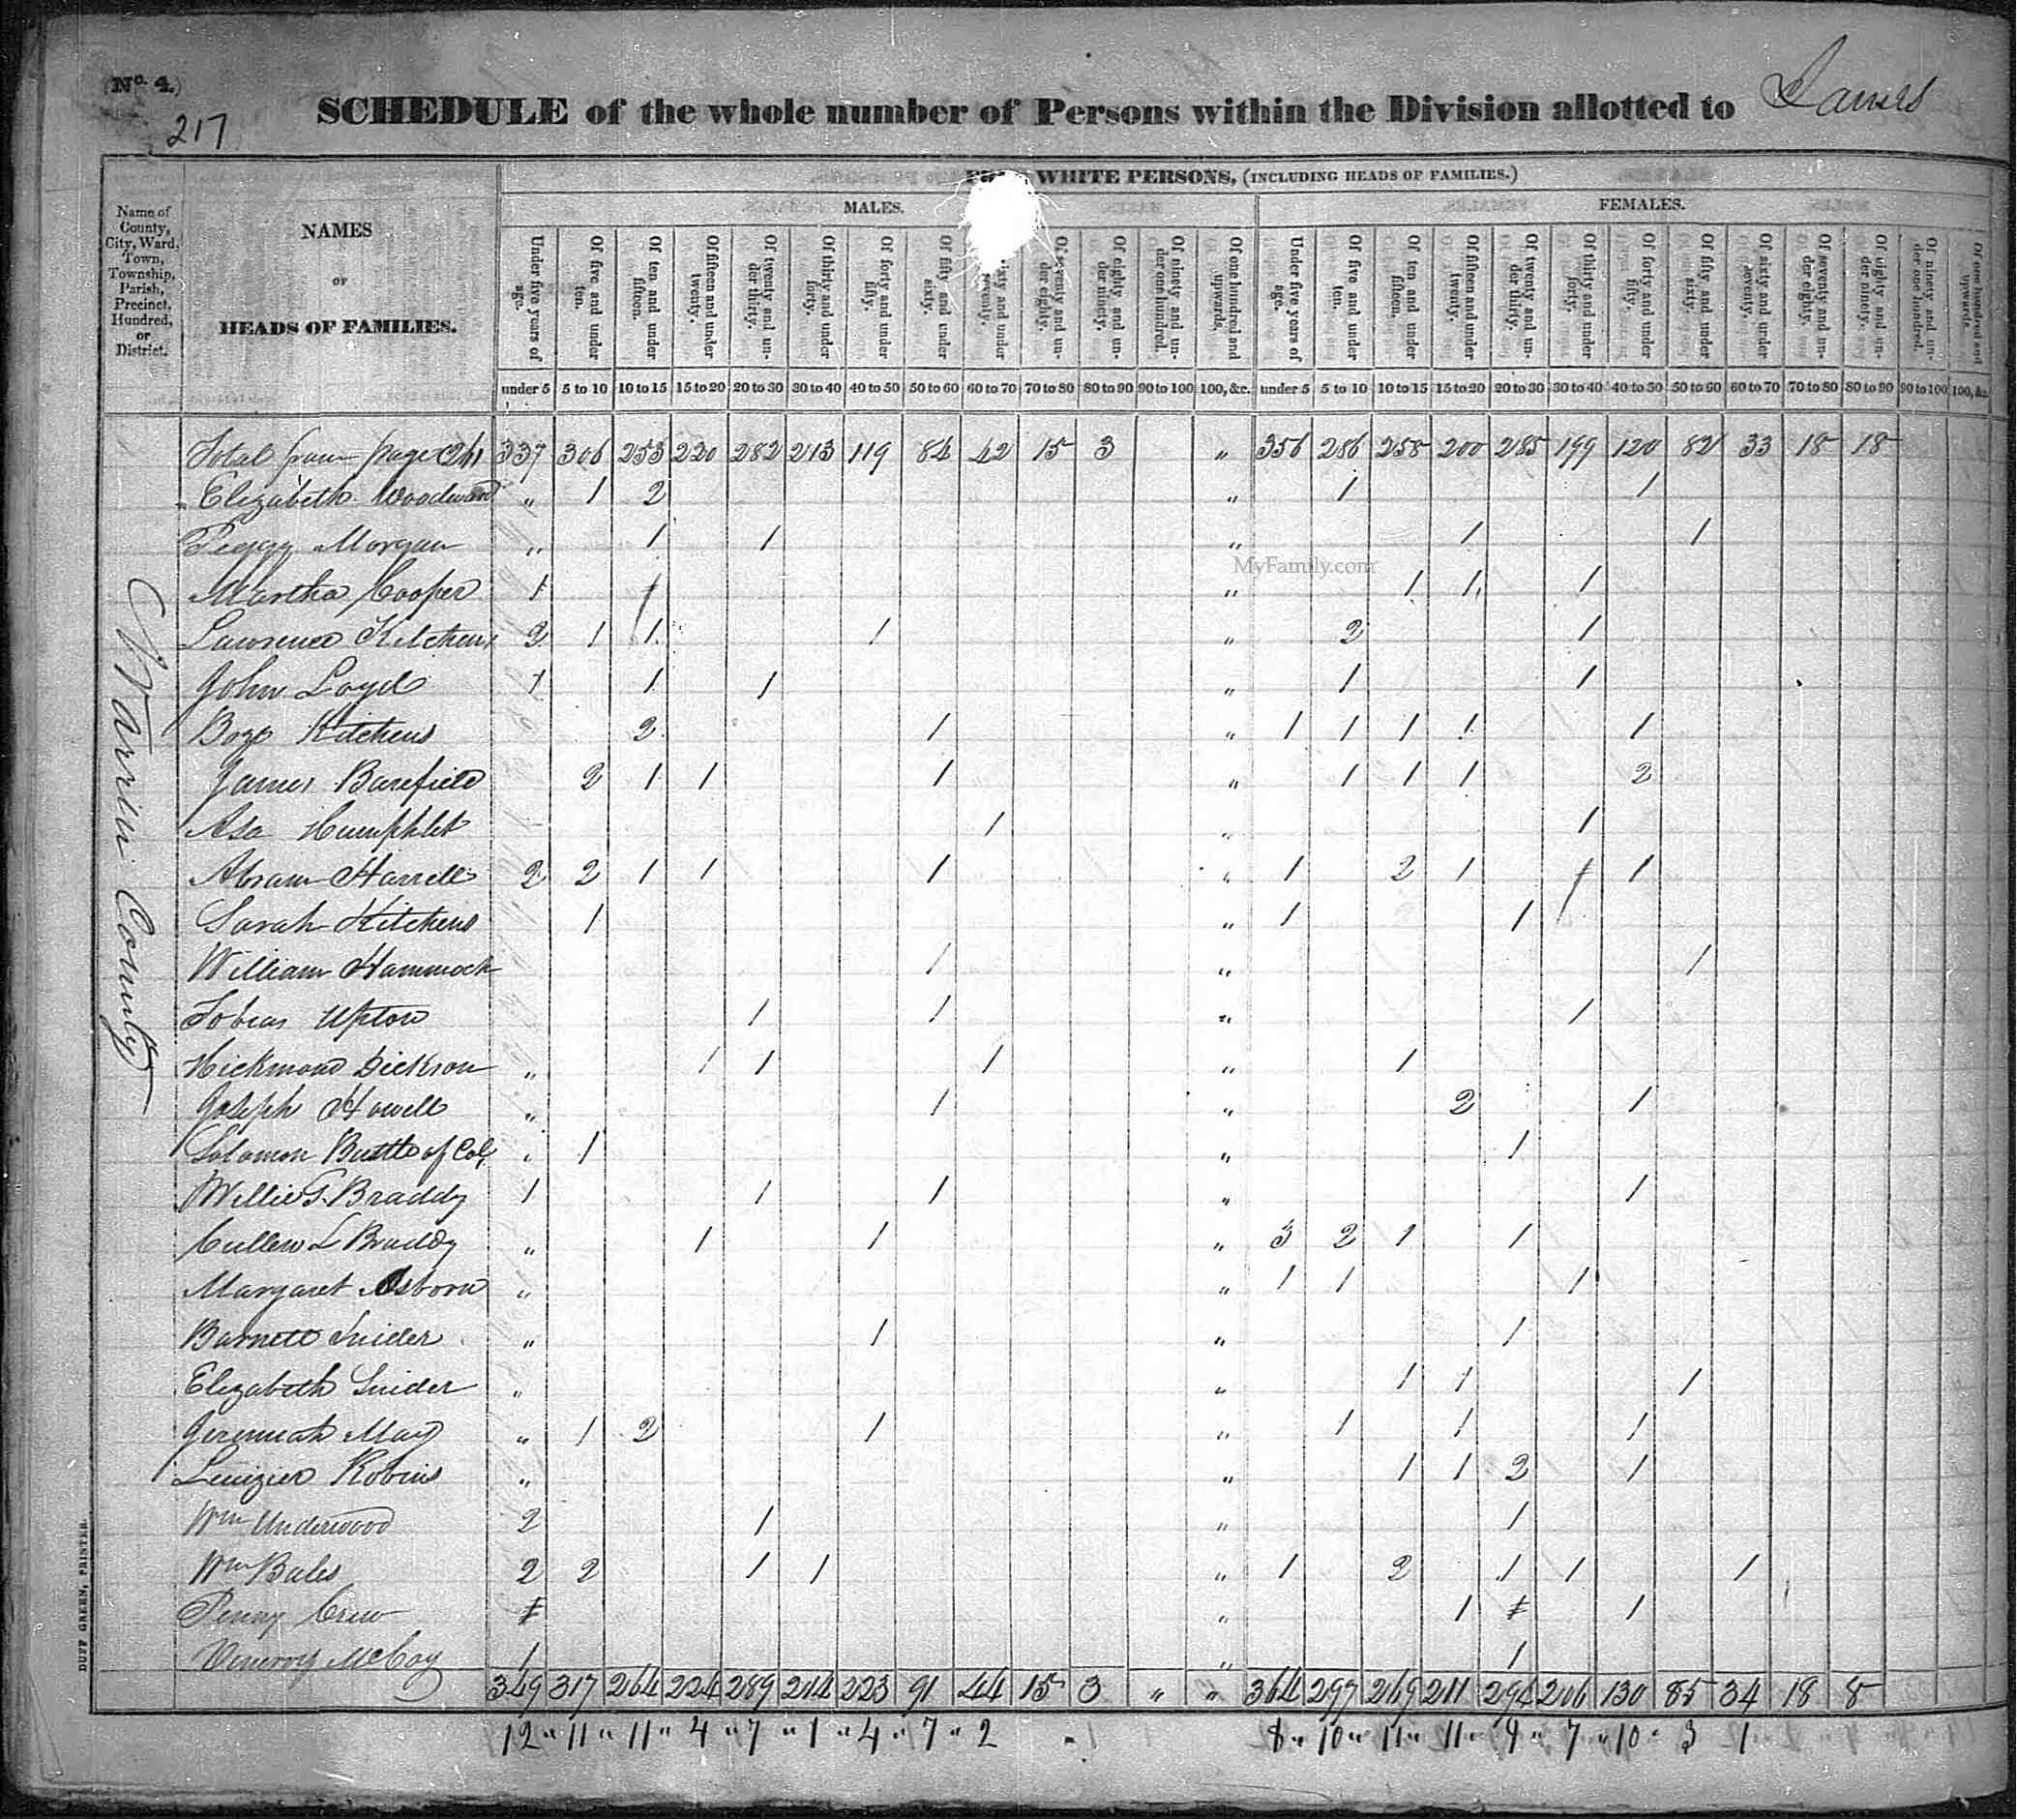 (No. 4.)
217
SCHEDULE of the whole number of Persons within the Division allotted to James
WHITE PERSONS, (INCLUDING HEADS OF FAMILIES.)
MALES. FEMALES.
Name of County, City, Ward, Town, Township, Parish, Precinct, Hundred, or District.
NAMES
OF
HEADS OF FAMILIES.
Under five years of age. Of five and under ten. Of ten and under fifteen. Of fifteen and under twenty. Of twenty and under thirty. Of thirty and under forty. Of forty and under fifty. Of fifty and under sixty. sixty and under seventy. Of seventy and under eighty. Of eighty and under ninety. Of ninety and under one hundred. Of one hundred and upwards. Under five years of age. Of five and under ten. Of ten and under fifteen. Of fifteen and under twenty. Of twenty and under thirty. Of thirty and under forty. Of forty and under fifty. Of fifty and under sixty. Of sixty and under seventy. Of seventy and under eighty. Of eighty and under ninety. Of ninety and under one hundred. Of one hundred and upwards.
under 5 5 to 10 10 to 15 15 to 20 20 to 30 30 to 40 40 to 50 50 to 60 60 to 70 70 to 80 80 to 90 90 to 100 100, &c. under 5 5 to 10 10 to 15 15 to 20 20 to 30 30 to 40 40 to 50 50 to 60 60 to 70 70 to 80 80 to 90 90 to 100 100, &c.
Total from page 337 306 253 220 282 213 119 84 42 15 3 " 356 286 258 200 285 199 120 82 33 18 18
Elizabeth Woodward " 1 2 " 1 1
Peggy Morgan " 1 1 " 1 1
MyFamily.com
Martha Cooper 1 1 " 1 1 1
Lawrence Kitchens 2 1 1 1 " 2 1
John Loyd 1 1 1 " 1 1
Boze Kitchens 2 1 " 1 1 1 1 1
James Barefield 2 1 1 1 " 1 1 1 2
Asa Humphlet 1 " 1
Abram Harrell 2 2 1 1 1 " 1 2 1 1 1
Sarah Kitchens 1 " 1 1
William Hammock 1 " 1
Tobias Upton 1 1 " 1
Hickmond Dickson " 1 1 1 " 1
Joseph Howell " 1 " 2 1
Solomon Buttle of Col, " 1 " 1
Willie G. Braddy 1 1 1 " 1
Cullen L Braddy " 1 1 " 3 2 1 1
Margaret Osborn " " 1 1 1
Barnett Snider " 1 " 1
Elizabeth Snider " " 1 1 1
Jeremiah May " 1 2 1 " 1 1 1
Robins " " 1 1 2 1
Wm Underwood 2 1 " 1
Wm Bales 2 2 1 1 " 1 2 1 1 1
Penny Crew 1 " 1 1 1
McCoy 1 " 1
349 317 264 224 289 214 223 91 44 15 3 " " 364 297 269 211 294 206 130 85 34 18 8
12 " 11 " 11 " 4 " 7 " 1 " 4 " 7 " 2 " 8 " 10 " 11 " 11 " 9 " 7 " 10 " 3 1
Warren County
DUFF GREEN, PRINTER.